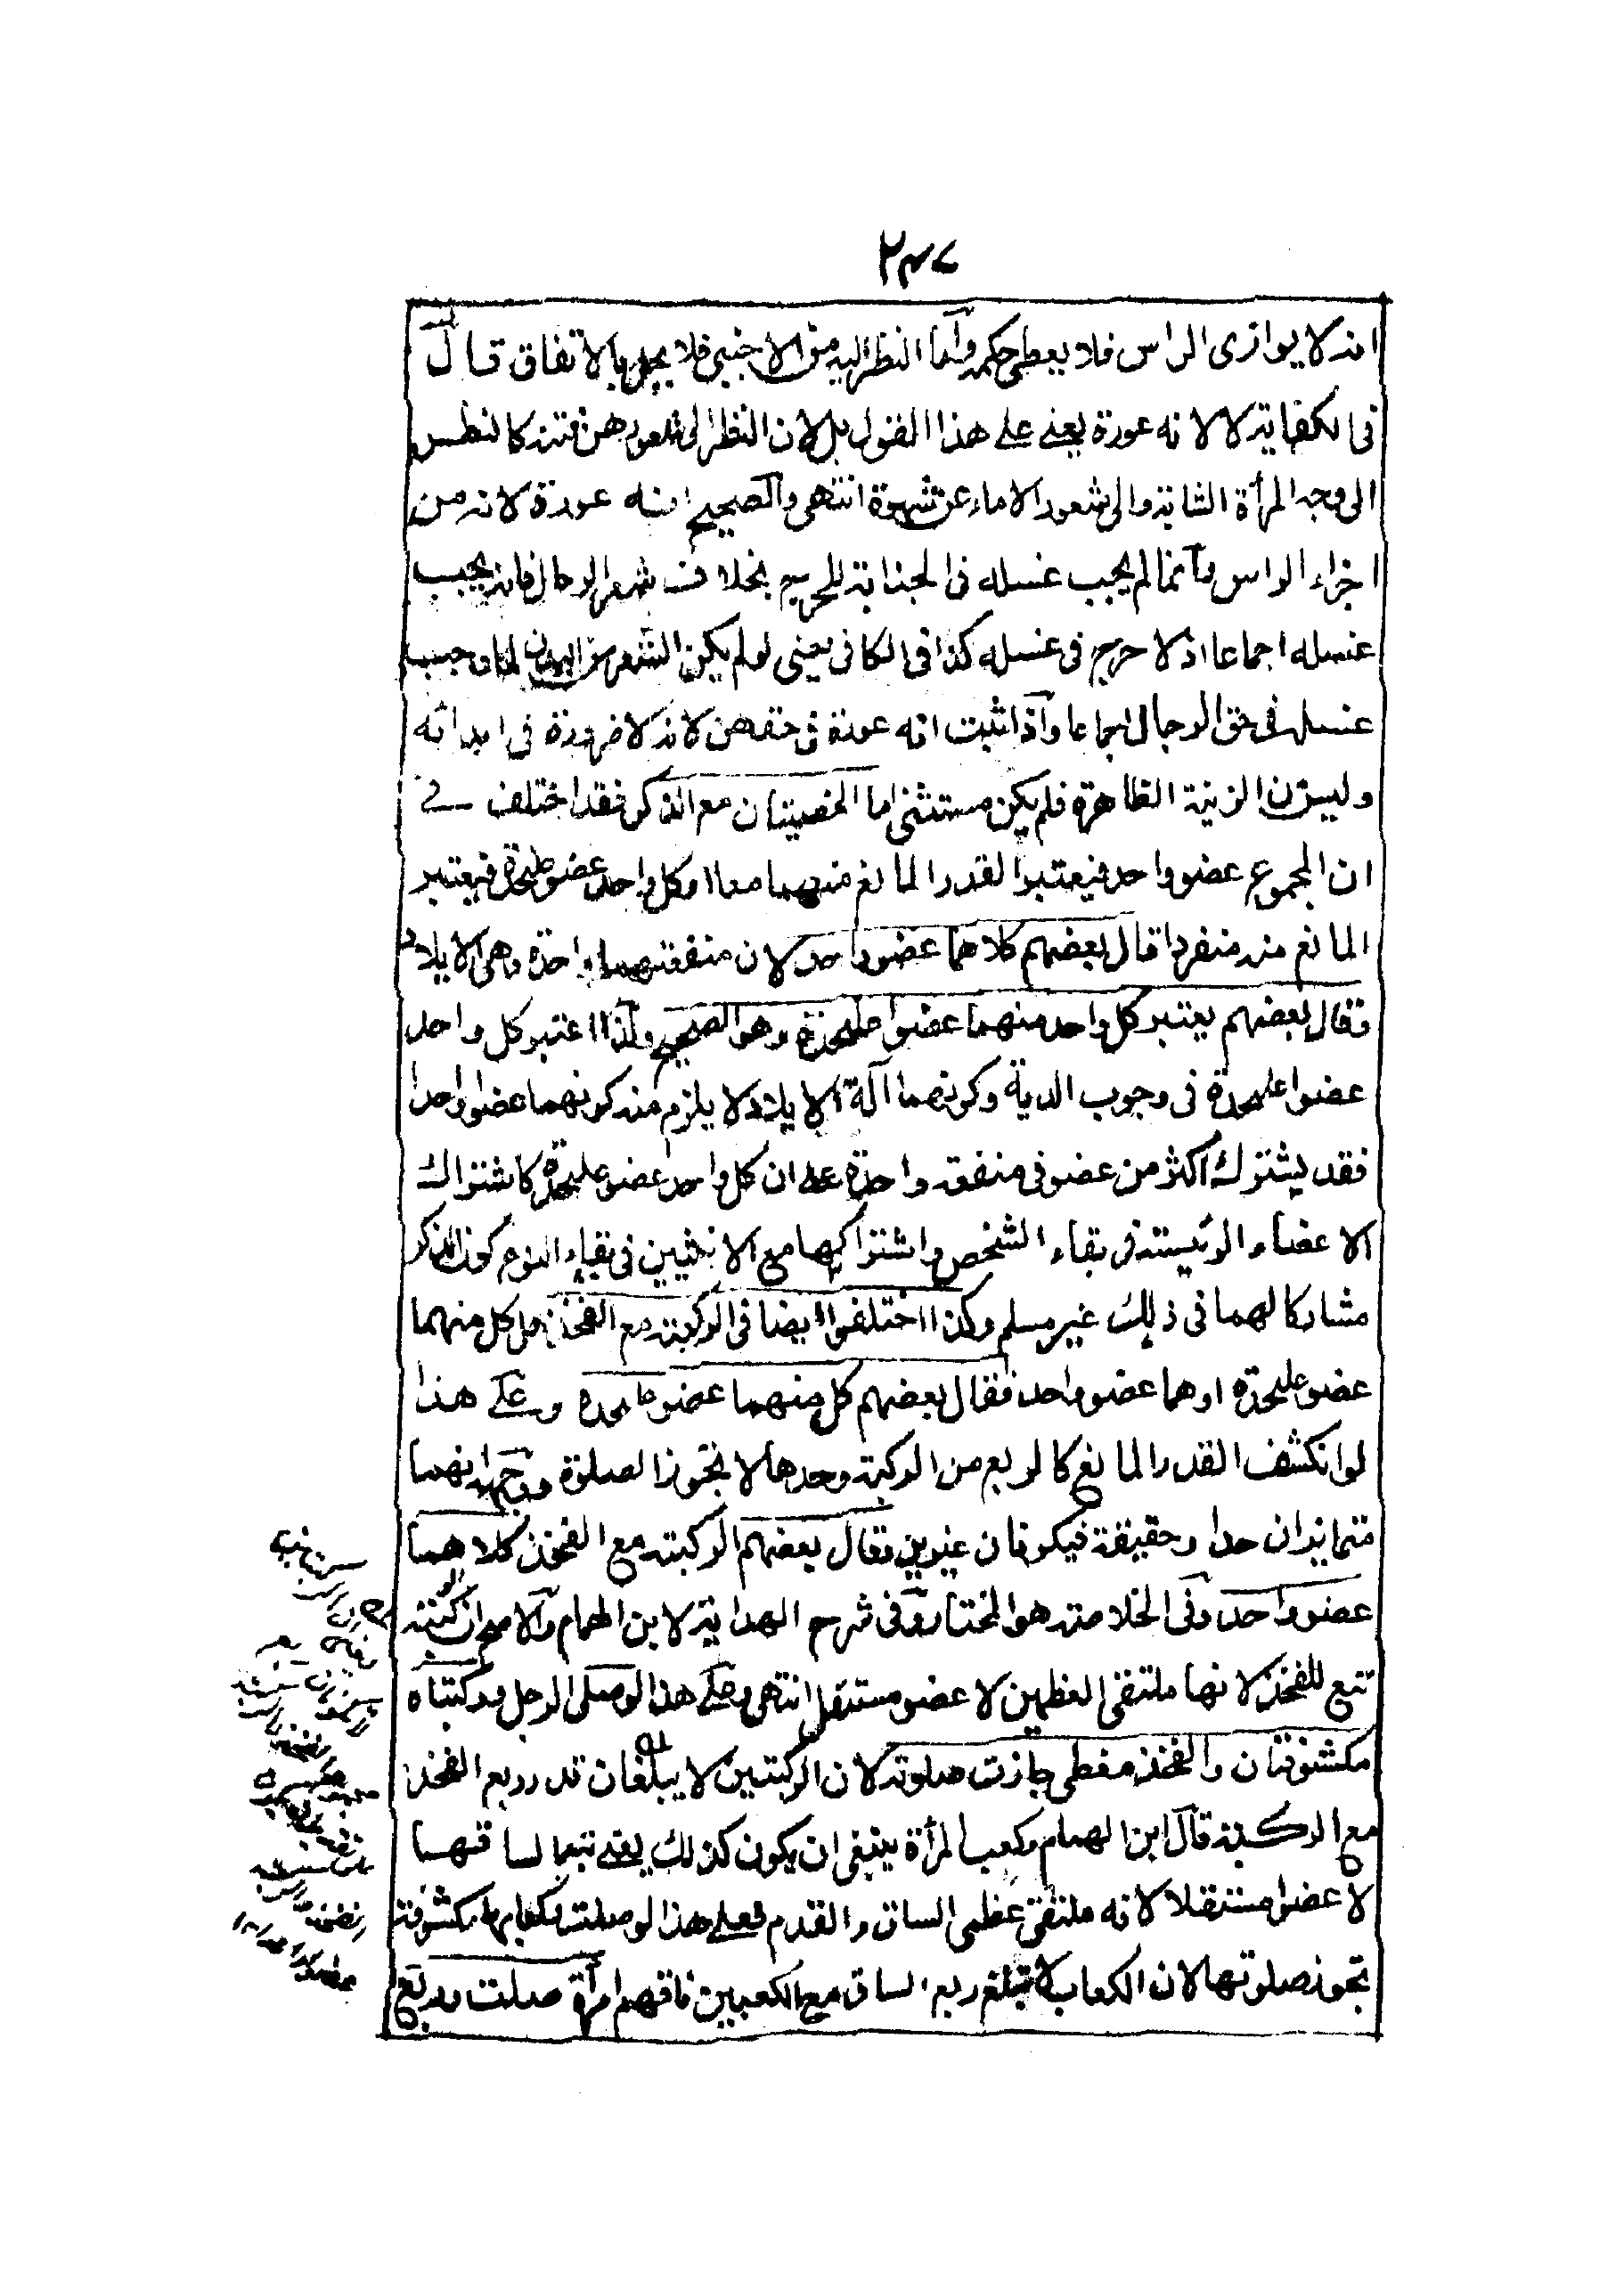 ٢٣٧
انه لا يوازى الراس فلا يعطى حكمه وآما النظر اليه من الاجنبى فلا يحل بالاتفاق قال
فى الكفاية لا لانه عورة يعنى على هذا القول بل لان النظر الى شعورهن فتنة كالنظر
الى وجه المرأة الشابة والى شعور الاماء عن شهوة انتهى والصحيح انه عورة لانه من
اجزاء الراس وآنما لم يجب غسله فى الجنابة للحرج بخلاف شعر الرجال فانه يجب
غسله اجماعا اذ لا حرج فى غسله كذا فى الكافى يعنى لو لم يكن الشعر من البدن لما وجب
غسله فى حق الرجال اجماعا وآذا ثبت انه عورة فى حقهن لانه لا ضرورة فى ابدائه
وليس من الزينة الظاهرة فلم يكن مستثنى اما الخصيتان مع الذكر فقد اختلف فى
ان المجموع عضو واحد فيعتبر القدر المانع منهما معا او كل واحد عضو عليحدة فيعتبر
المانع منه منفردا قال بعضهم كلاهما عضو واحد لان منفعتهما واحدة وهى الايلاد
وقال بعضهم يعتبر كل واحد منهما عضوا عليحدة وهو الصحيح ولذا اعتبر كل واحد
عضوا عليحدة فى وجوب الدية وكونهما آلة الايلاد لا يلزم منه كونهما عضوا واحدا
فقد يشترك اكثر من عضو فى منفعة واحدة على ان كل واحد عضو عليحدة كاشتراك
الاعضاء الرئيسة فى بقاء الشخص واشتراكها مع الانثيين فى بقاء النوع كون الذكر
مشاركا لهما فى ذلك غير مسلم وكذا اختلفوا ايضا فى الركبة مع الفخذ هل كل منهما
عضو عليحدة او هما عضو واحد فقال بعضهم كل منهما عضو عليحدة وعلى هذا
لو انكشف القدر المانع كالربع من الركبة وحدها لا تجوز الصلوة ووجه انهما
متمايزان حدا وحقيقة فيكونان غيرين وقال بعضهم الركبة مع الفخذ كلاهما
عضو واحد وفى الخلاصة هو المختار وفى شرح الهداية لابن الهمام والاصح ان الركبة
تبع للفخذ لانها ملتقى العظمين لا عضو مستقل انتهى وعلى هذا لو صلى الرجل وركبتاه
مكشوفتان والفخذ مغطى جازت صلوته لان الركبتين لا يبلغان قدر ربع الفخذ
مع الركبة قال ابن الهمام وكعب المرأة ينبغى ان يكون كذلك يعنى تبعا لساقها
لا عضوا مستقلا لانه ملتقى عظمى الساق والقدم فعلى هذا لو صلت وكعابها مكشوفة
تجوز صلوتها لان الكعاب لا تبلغ ربع الساق مع الكعبين فافهم امرأة صلت وربع